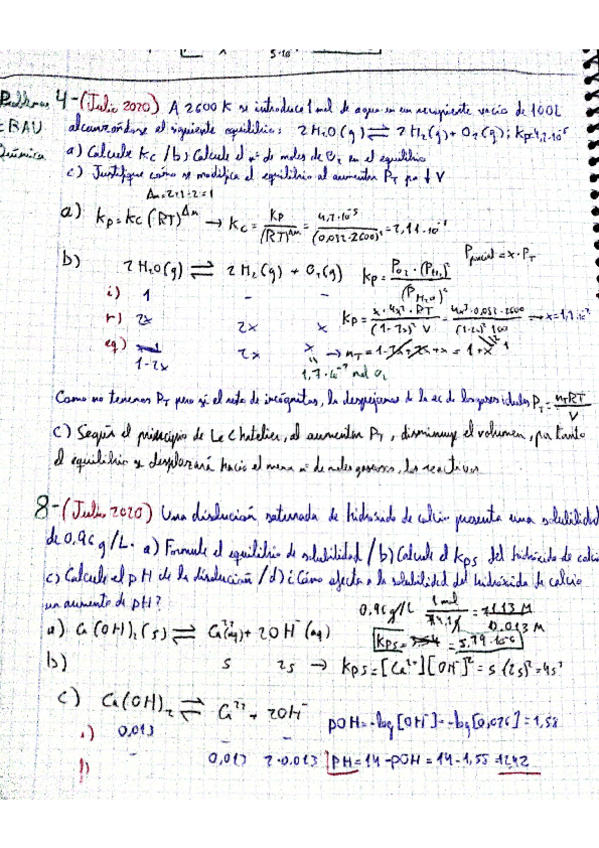 5·10
Problemas 4-(Julio 2020) A 2600 K se introduce 1 mol de agua en un recipiente vacío de 100L
EBAU alcanzándose el siguiente equilibrio: 2H₂O(g) ⇌ 2H₂(g) + O₂(g); Kp=4,2·10⁻⁵
Química a) Calcule Kc / b) Calcule el nº de moles de O₂ en el equilibrio
c) Justifique cómo se modifica el equilibrio al aumentar P_T por ↓ V
Δn=2+1-2=1
a) Kp=Kc(RT)^Δn → Kc = Kp/(RT)^Δn = 4,2·10⁻⁵/(0,082·2600)¹ = 2,11·10⁻¹
b) 2H₂O(g) ⇌ 2H₂(g) + O₂(g) Kp = P_O₂·(P_H₂)²/(P_H₂O)² Pparcial = x·P_T
i) 1 - -
r) 2x 2x x Kp = x·4x²·RT/(1-2x)² V = 4x³·0,082·2600/(1-2x)² 100 → x=1,7·10⁻²
eq) 1-2x 2x x → n_T = 1-2x+2x+x = 1+x
1,7·10⁻² mol O₂
Como no tenemos P_T pero sí el resto de incógnitas, la despejamos de la ec de los gases ideales P_T = n_T RT/V
c) Según el principio de Le Chatelier, al aumentar P_T, disminuye el volumen, por tanto
el equilibrio se desplazará hacia el menor nº de moles gaseosos, los reactivos
8-(Julio 2020) Una disolución saturada de hidróxido de calcio presenta una solubilidad
de 0,96 g/L. a) Formule el equilibrio de solubilidad / b) Calcule el Kps del hidróxido de calcio
c) Calcule el pH de la disolución / d) ¿Cómo afecta a la solubilidad del hidróxido de calcio
un aumento de pH?
0,96 g/L 1 mol/74,1g = 0.013 M
a) Ca(OH)₂(s) ⇌ Ca²⁺(aq) + 2OH⁻(aq) Kps = 8.79·10⁻⁶
b) s 2s → Kps = [Ca²⁺][OH⁻]² = s(2s)² = 4s³
c) Ca(OH)₂ ⇌ Ca²⁺ + 2OH⁻ pOH = -log[OH⁻] = -log[0,026] = 1,58
i) 0,013 - -
f) - 0,013 2·0.013 pH = 14 - pOH = 14 - 1,58 = 12,42